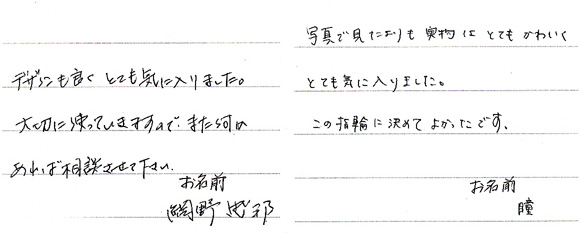 デザインも良く とても気に入りました。
大切に使っていきますので、また何か
あれば相談させて下さい。
お名前
岡野忠邦
写真で見たよりも 実物は とても かわいく
とても気に入りました。
この指輪に決めて よかったです。
お名前
瞳